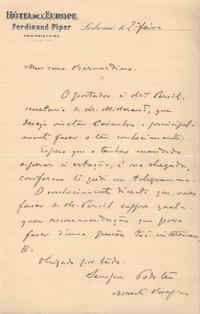 HÔTEL DE L'EUROPE
Ferdinand Piper
PROPRIETAIRE
Meu caro Bernardino
O portador é
secretario de Mr. Millerand, que
deseja visitar Coimbra e principal-
mente fazer o teu conhecimento.
Espero que o tenhas mandado
esperar á estação, á sua chegada,
conforme te pedi em telegramma.
O conhecimento directo que vaes
fazer de Mr. suppre qual-
quer recommendação que possa
fazer d'uma pessoa tão interessan-
te.
Obrigado por tudo.
Sempre